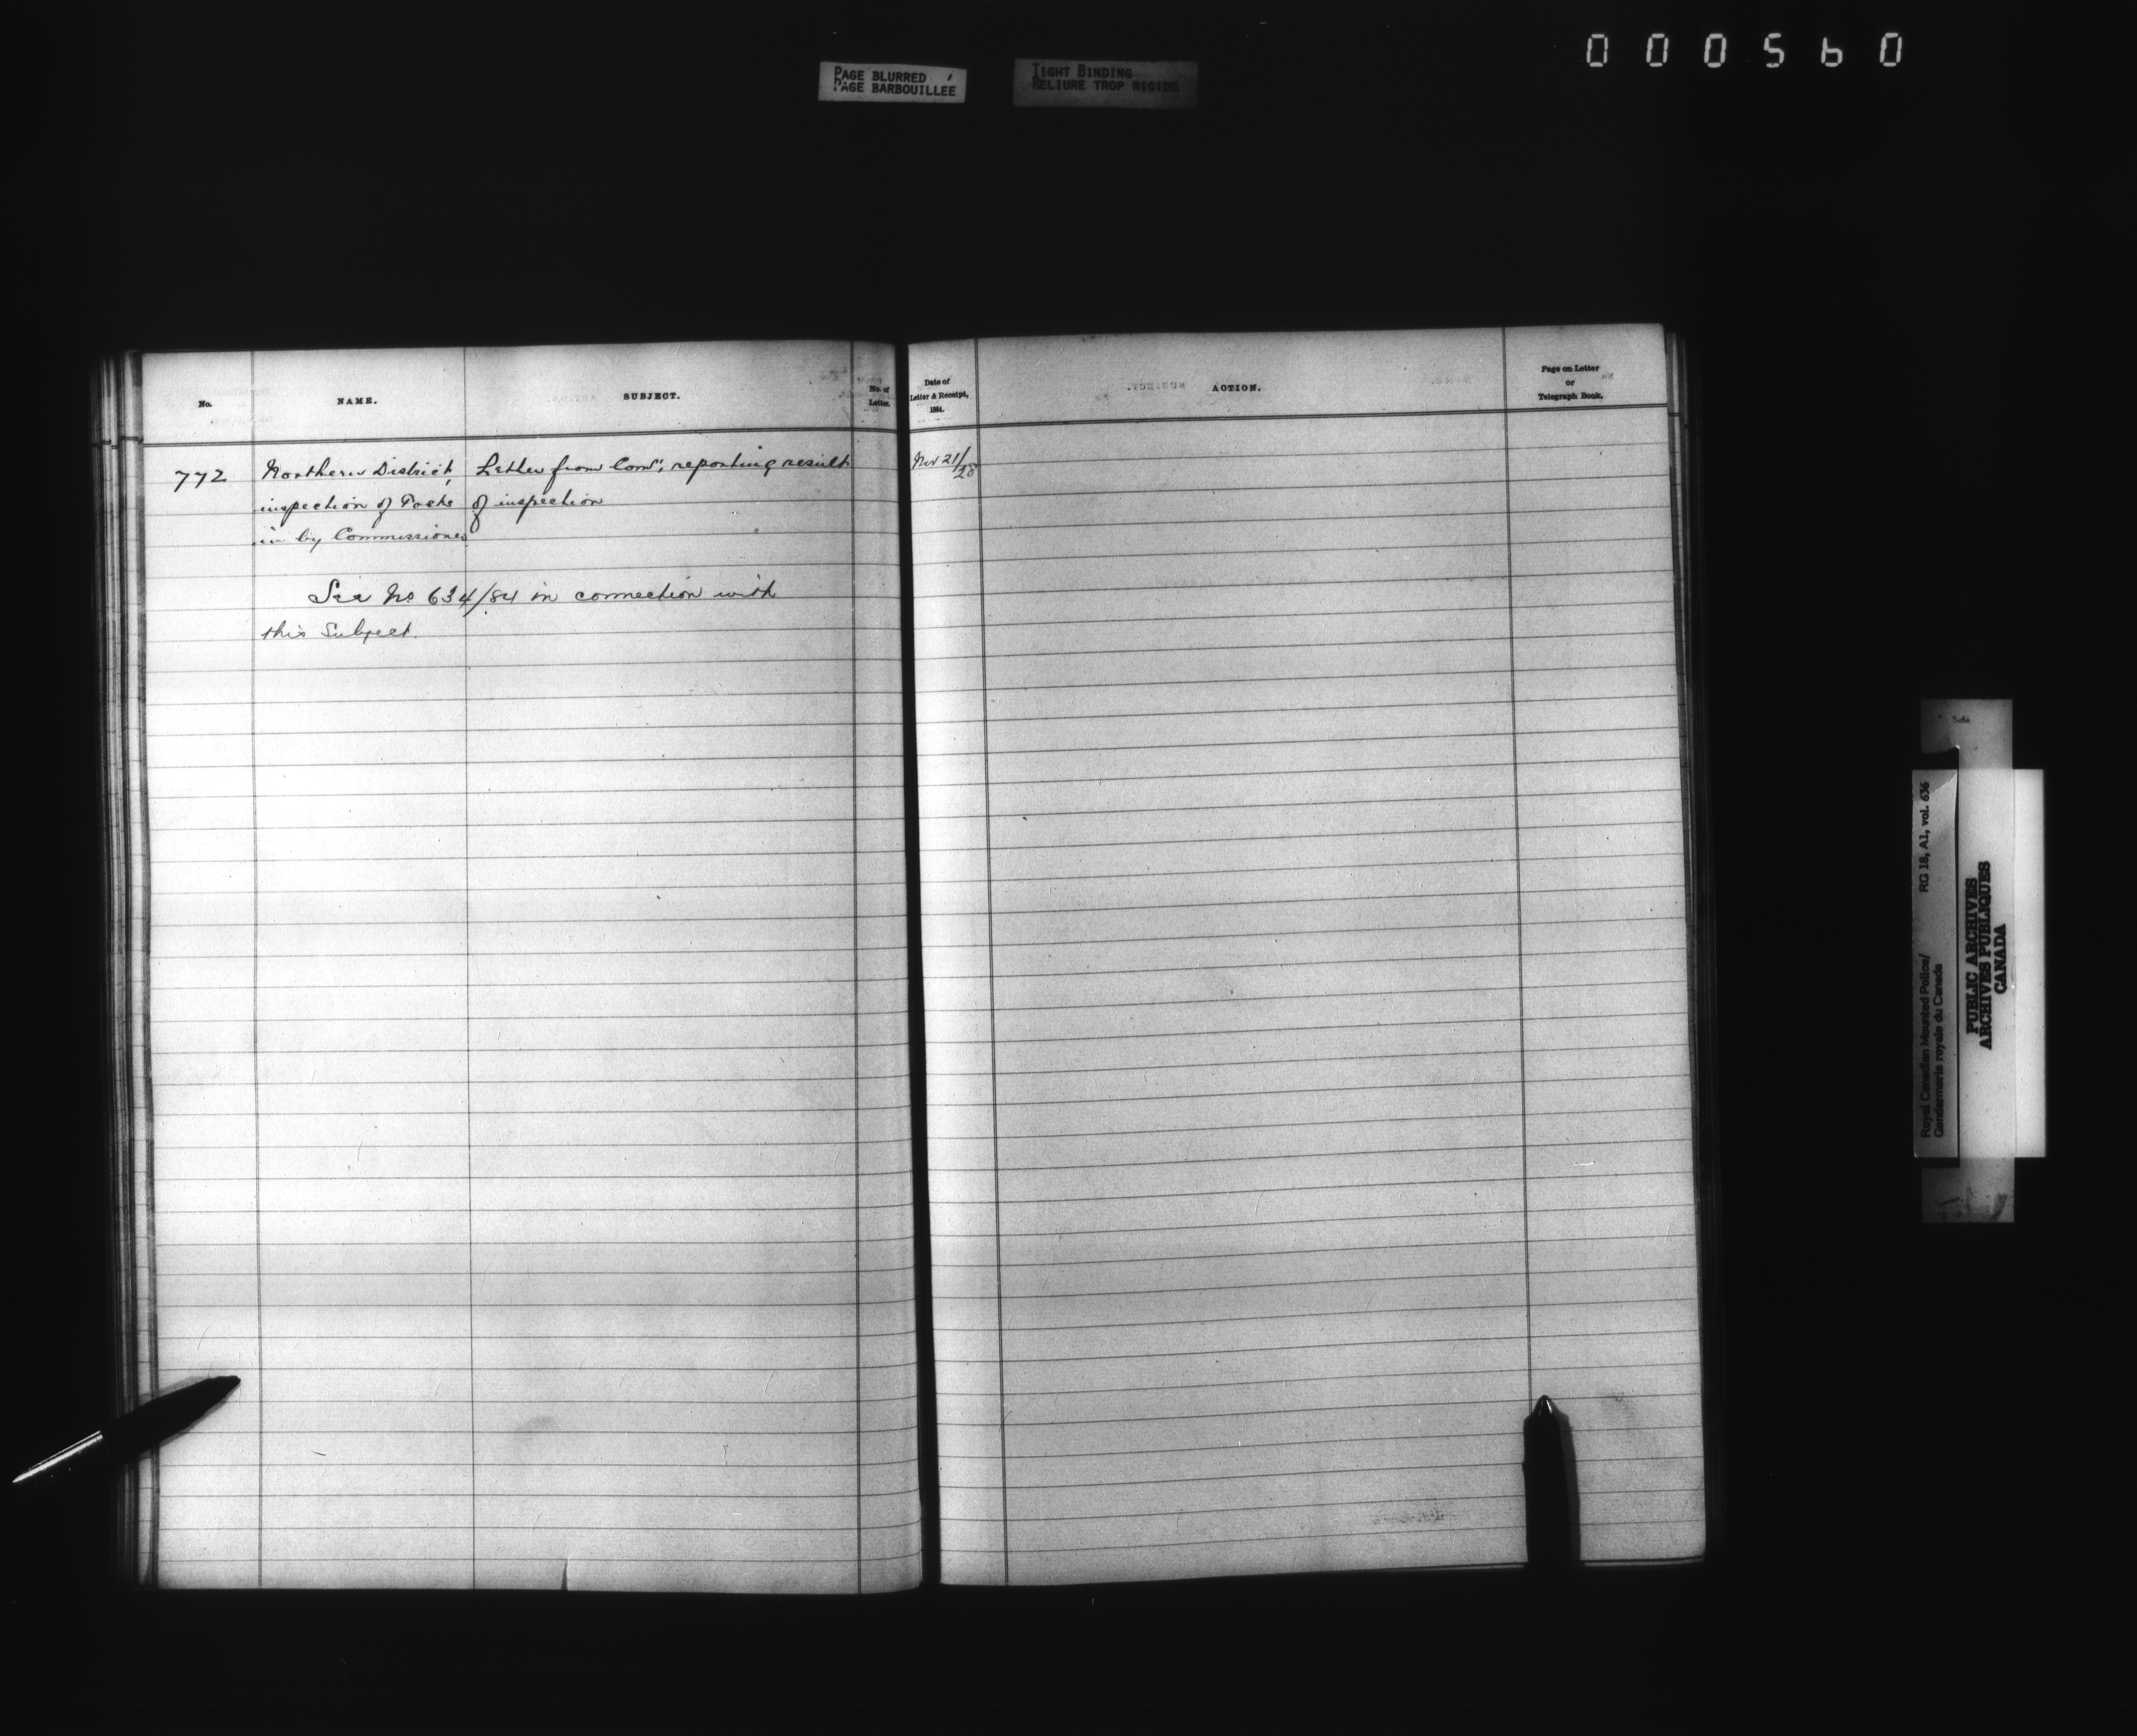 000560
PAGE BLURRED
PAGE BARBOUILLÉE
TIGHT BINDING
RELIURE TROP RIGIDE
No.
NAME.
SUBJECT.
No. of
Letter.
Date of
Letter & Receipt,
1884.
ACTION.
Page on Letter
or
Telegraph Book.
772
Northern District,
inspection of Posts
in by Commissioner
Letter from Comr, reporting result
of inspection
Nov 21/28
See No 634/84 in connection with
this Subject.
Royal Canadian Mounted Police/
Gendarmerie royale du Canada
RG 18, A1, vol. 636
PUBLIC ARCHIVES
ARCHIVES PUBLIQUES
CANADA